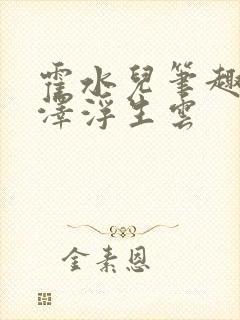 霍水兒筆趣
澤浮生雲
金素恩